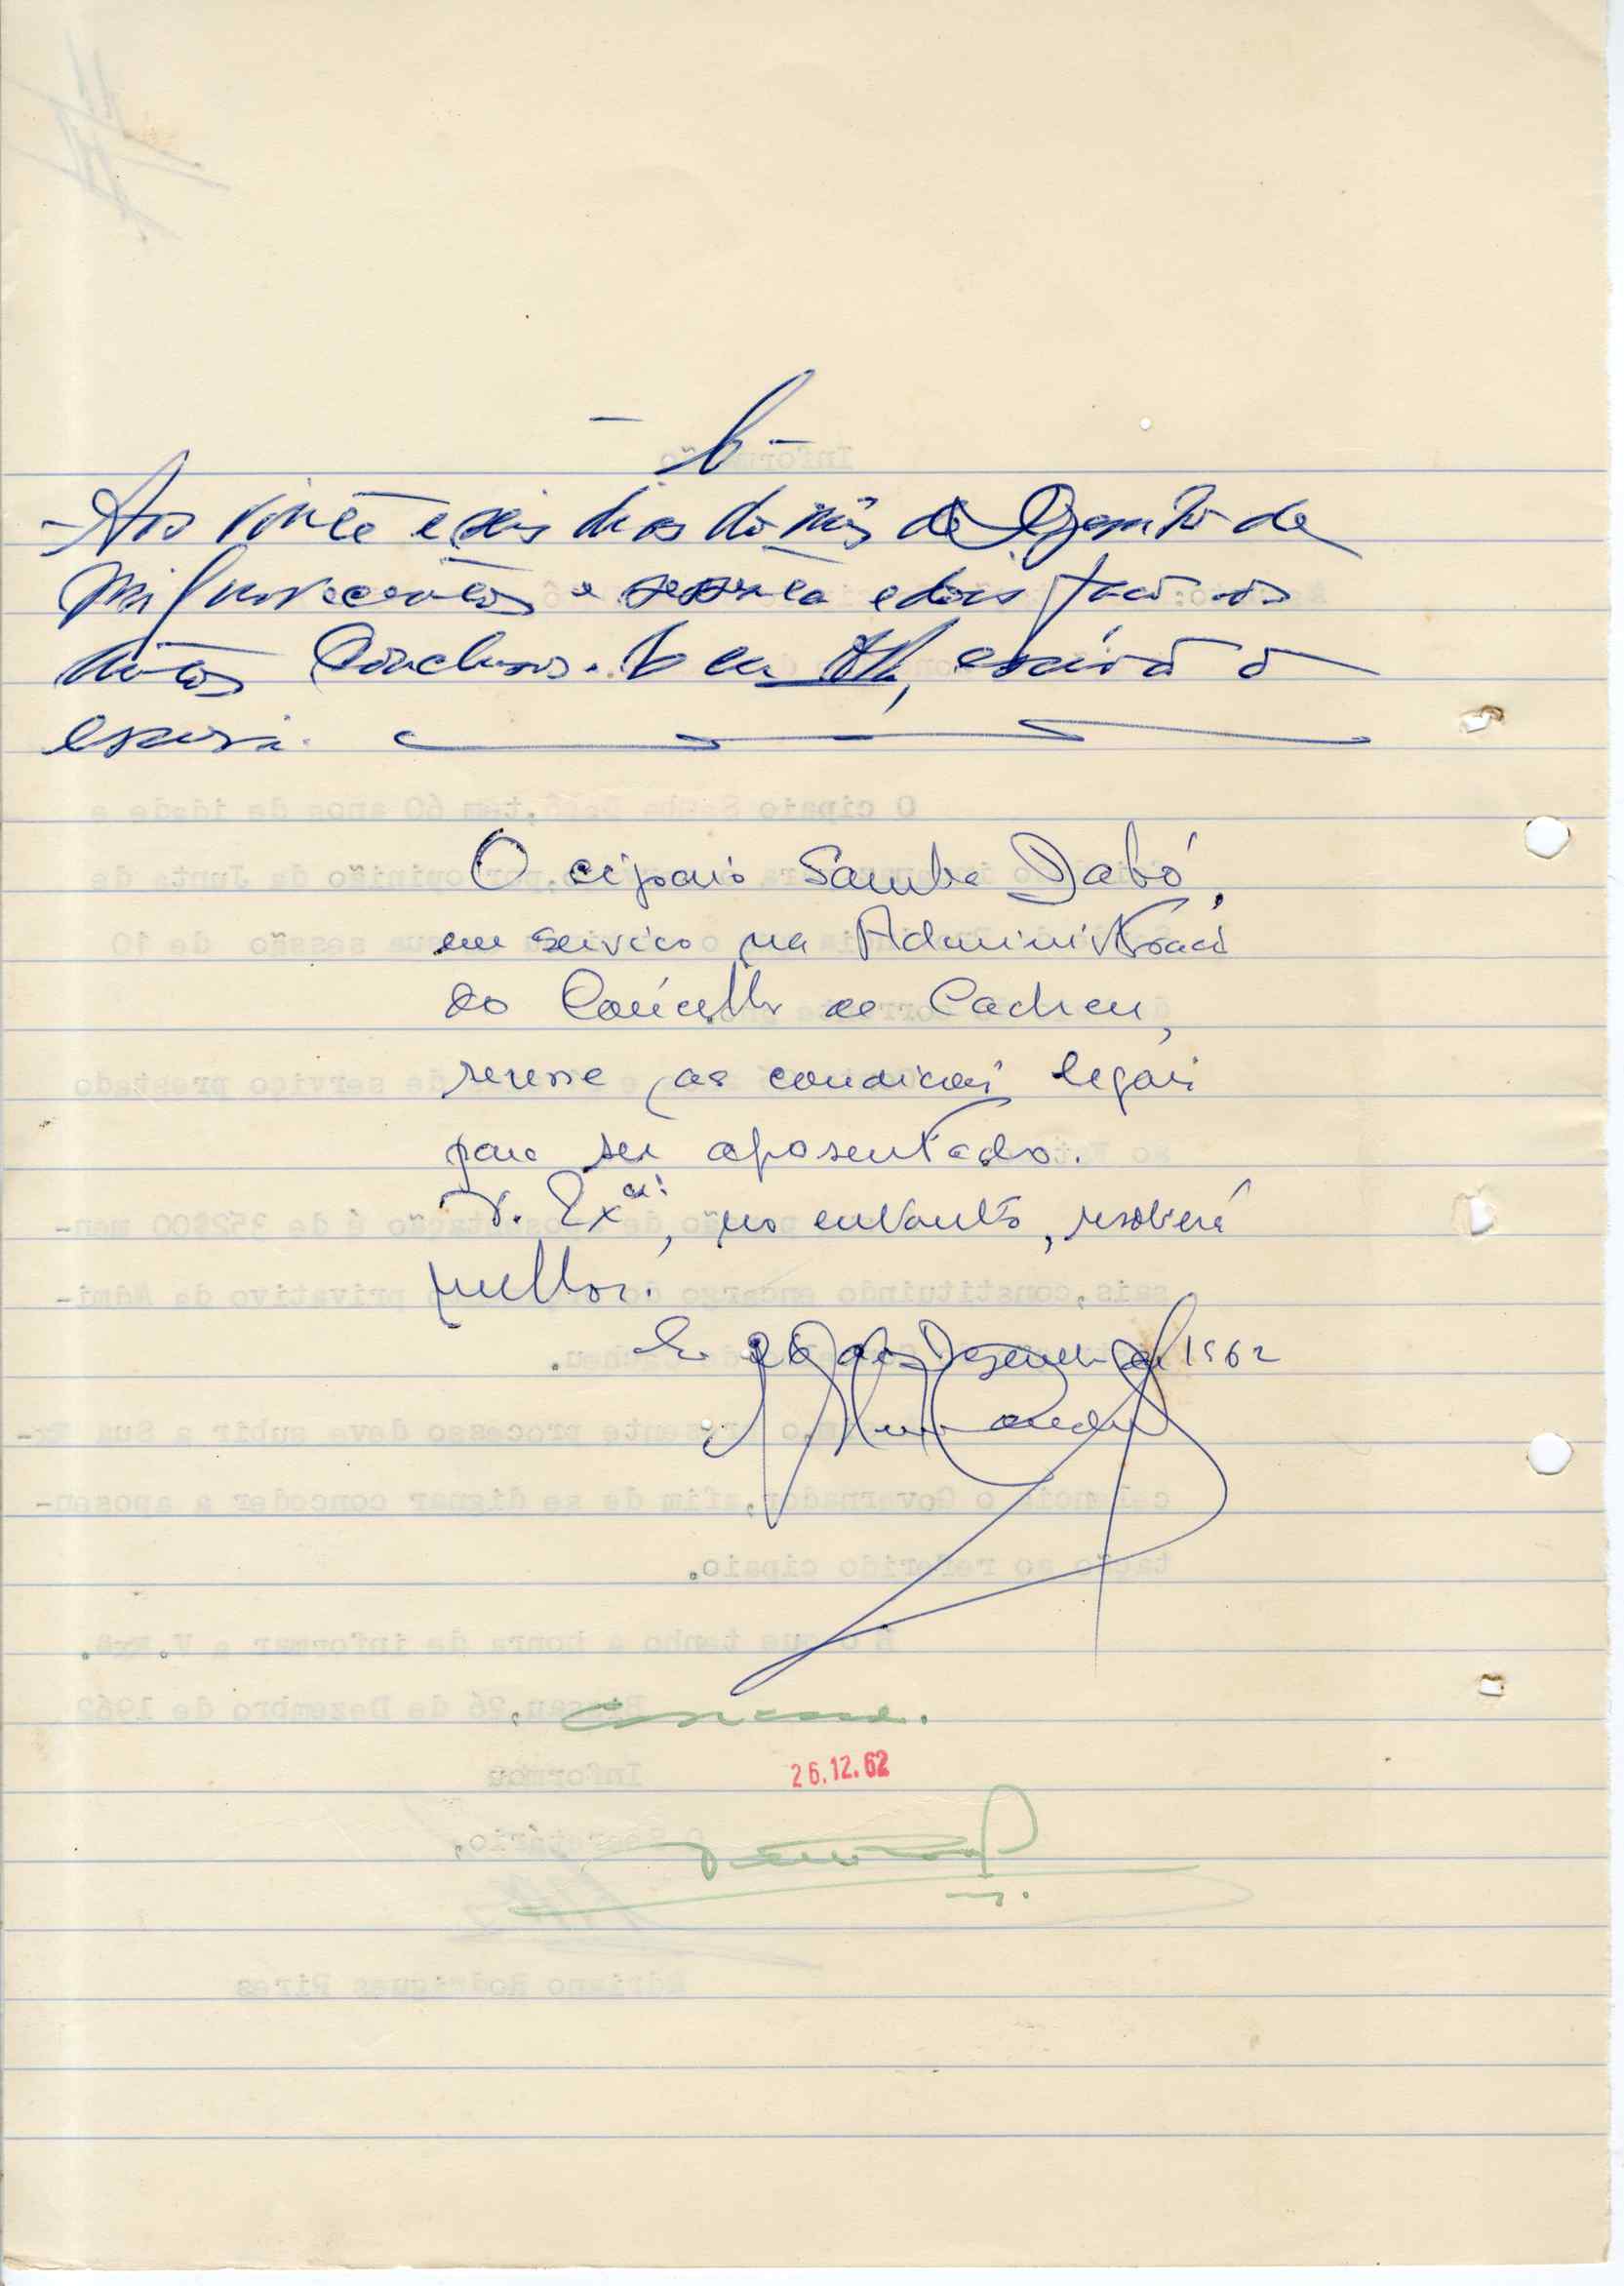 - Aos vinte e seis dias do mês de Dezembro de
mil novecentos e sessenta e dois, faço os
ditos Conclusos. E eu, escrivão o
escrevi.
O cipaio Samba Dabó,
em serviço na Administração
do Concelho de Cacheu,
reune as condições legais
para ser aposentado.
V. Exª, no entanto, resolverá
melhor.
Em 26 de Dezembro de 1962
Concordo.
26.12.62